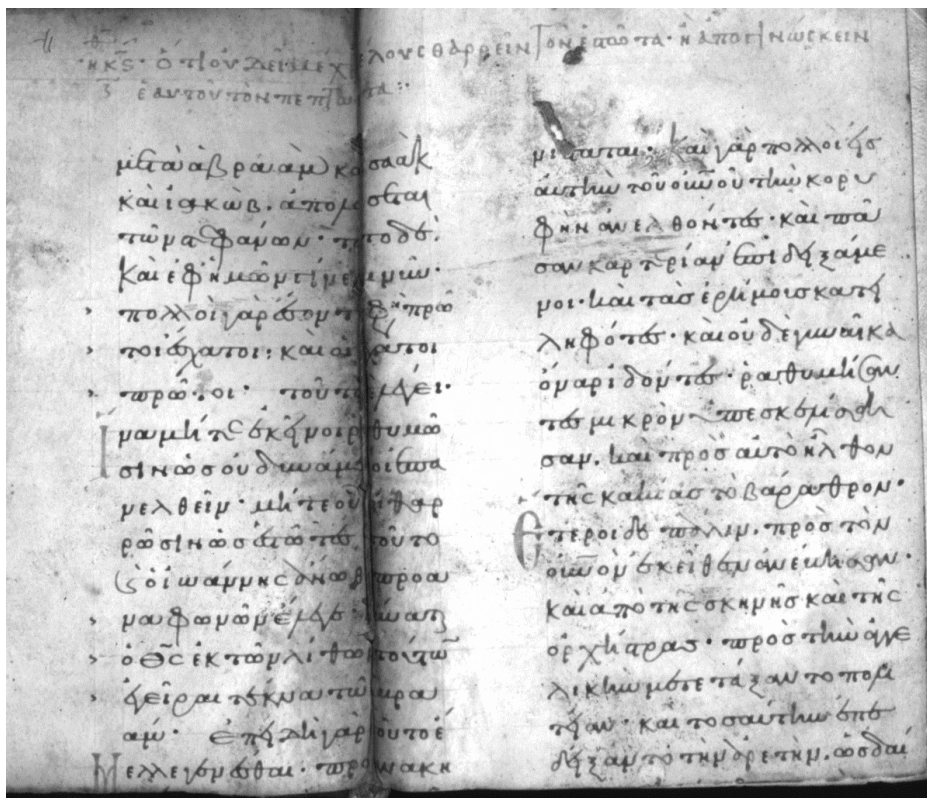 ὅτι οὐ δεῖ μέχρι τέλους θαρρεῖν τὸν ἑστῶτα· ἢ ἀπογινώσκειν
ἑαυτοῦ τὸν πεπτωκότα
μετὰ ἀβραὰμ καὶ ἰσαὰκ
καὶ ἰακὼβ.
τῶν στεφάνων·
καὶ ἐφ' ἡμῶν
πολλοὶ γὰρ ἔσονται φη πρῶ
τοι ἔσχατοι· καὶ ἔσχατοι
πρῶτοι· τοῦτο λέγει·
ἵνα μήτε ἐκεῖνοι ῥαθυμῶ
σιν ὡς οὐ δυνάμενοι ἐπα
νελθεῖν· μήτε οὗτοι θαρ
ρῶσιν ὡς ἑστῶτες τοῦτο
καὶ ὁ ἰωάννης ἄνωθεν προα
ναφωνῶν ἔλεγε· δύναται
ὁ θς ἐκ τῶν λίθων τούτων
ἐγεῖραι τέκνα τῷ ἀβρα
άμ· ἐπειδὴ γὰρ τοῦτο ἔ
μελλε γίνεσθαι· προανακη
καὶ γὰρ πολλοὶ εἰς
αὐτὴν τοῦ οὐνοῦ τὴν κορυ
φὴν ἀνελθόντες· καὶ πᾶ
σαν καρτερίαν ἐπιδειξάμε
νοι· καὶ τὰς ἐρήμοις κατει
ληφότες· καὶ οὐδὲ γυναῖκα
ὄναρ ἰδόντες· ῥαθυμήσαν
τες μικρὸν ὑπεσκελίσθη
σαν. καὶ πρὸς αὐτὸ ἦλθον
τῆς κακίας τὸ βάραθρον·
Ἕτεροι δὲ πάλιν. πρὸς τὸν
οὐνὸν ἐκεῖθεν ἀνέβησαν·
καὶ ἀπὸ τῆς σκηνῆς καὶ τῆς
ὀρχήστρας· πρὸς τὴν ἀγγε
λικὴν μετετάξαντο πολι
τείαν· καὶ τοσαύτην ἐπε
δείξαντο τὴν ἀρετὴν. ὡς δαί